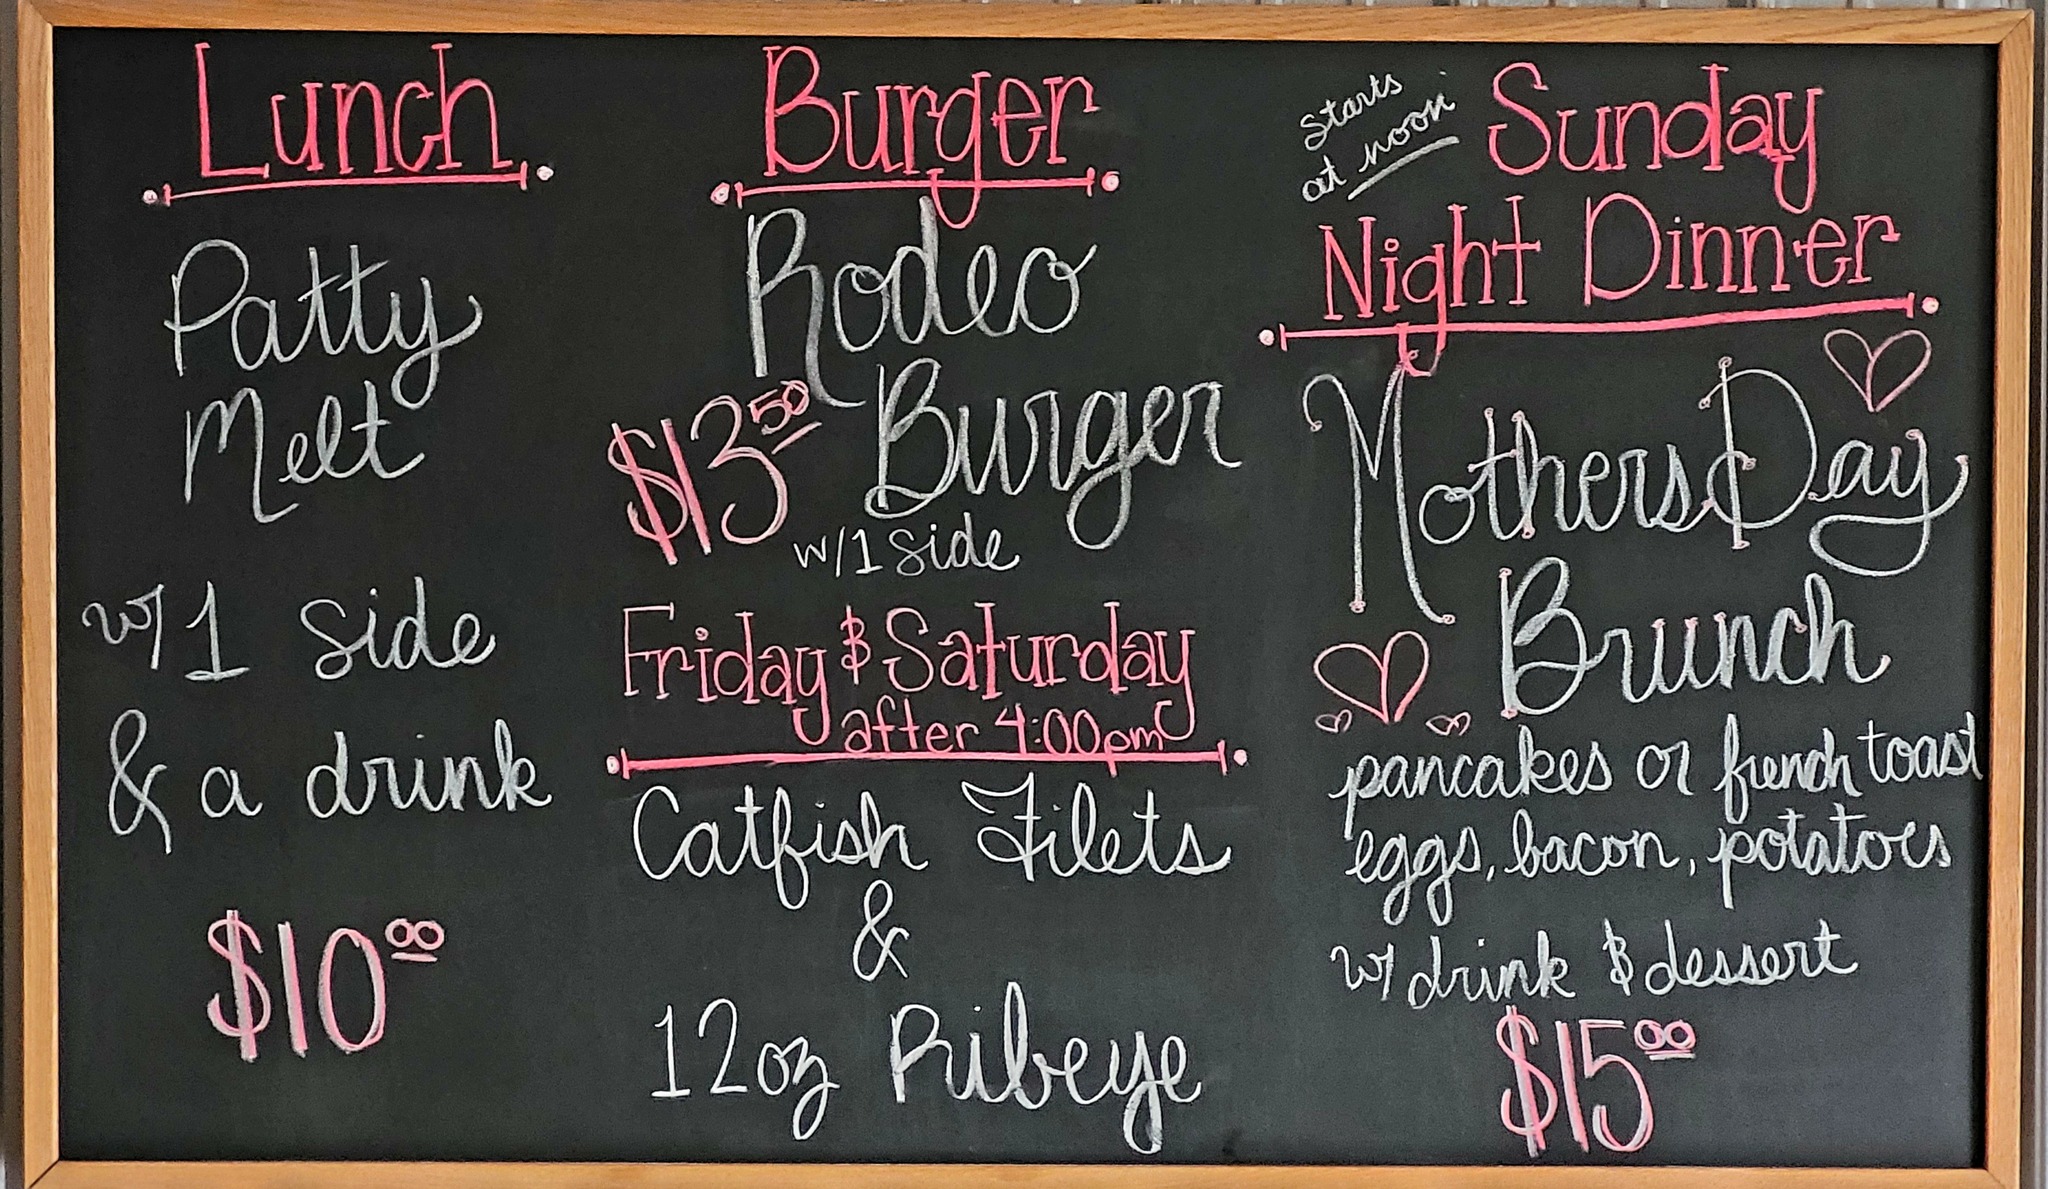 Lunch
Patty
Melt
w/ 1 side
& a drink
$10.00
Burger
Rodeo
$13.50 Burger
w/1 side
Friday & Saturday
after 4:00pm
Catfish Filets
&
12oz Ribeye
Starts
at noon
Sunday
Night Dinner
Mothers Day
Brunch
pancakes or french toast
eggs, bacon, potatoes
w/ drink & dessert
$15.00